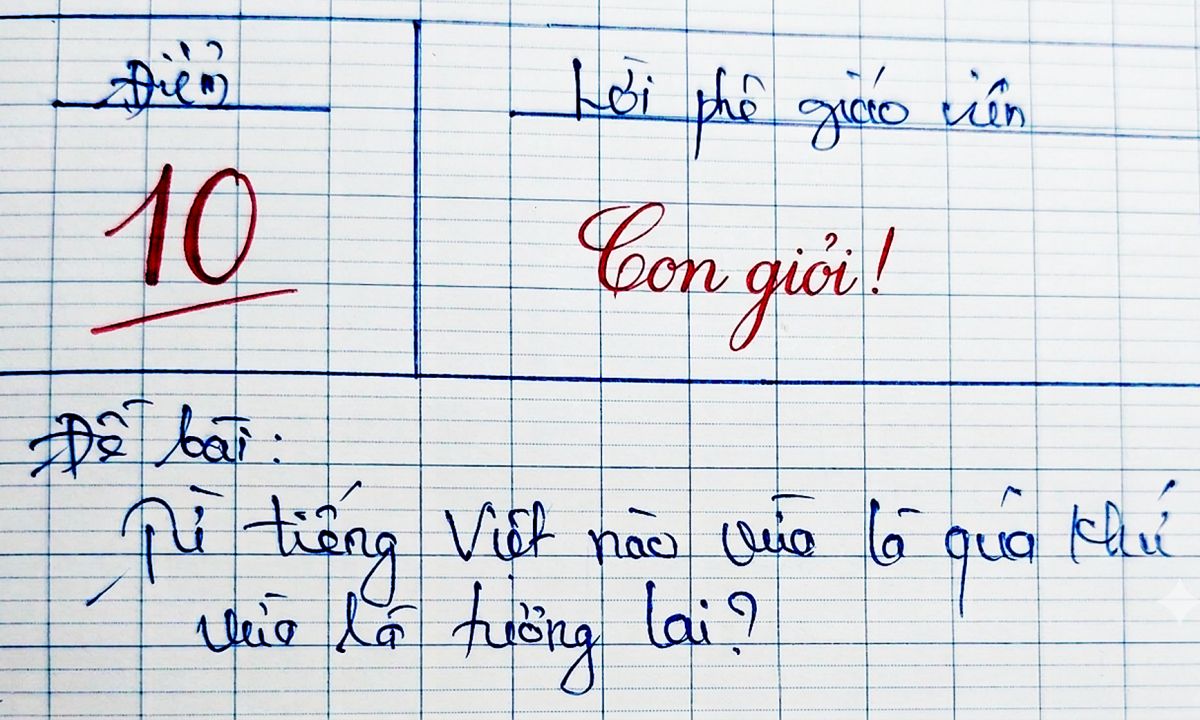 Điểm
Lời phê giáo viên
10
Con giỏi!
Đề bài:
Từ tiếng Việt nào vừa là quá khứ
vừa là tương lai?